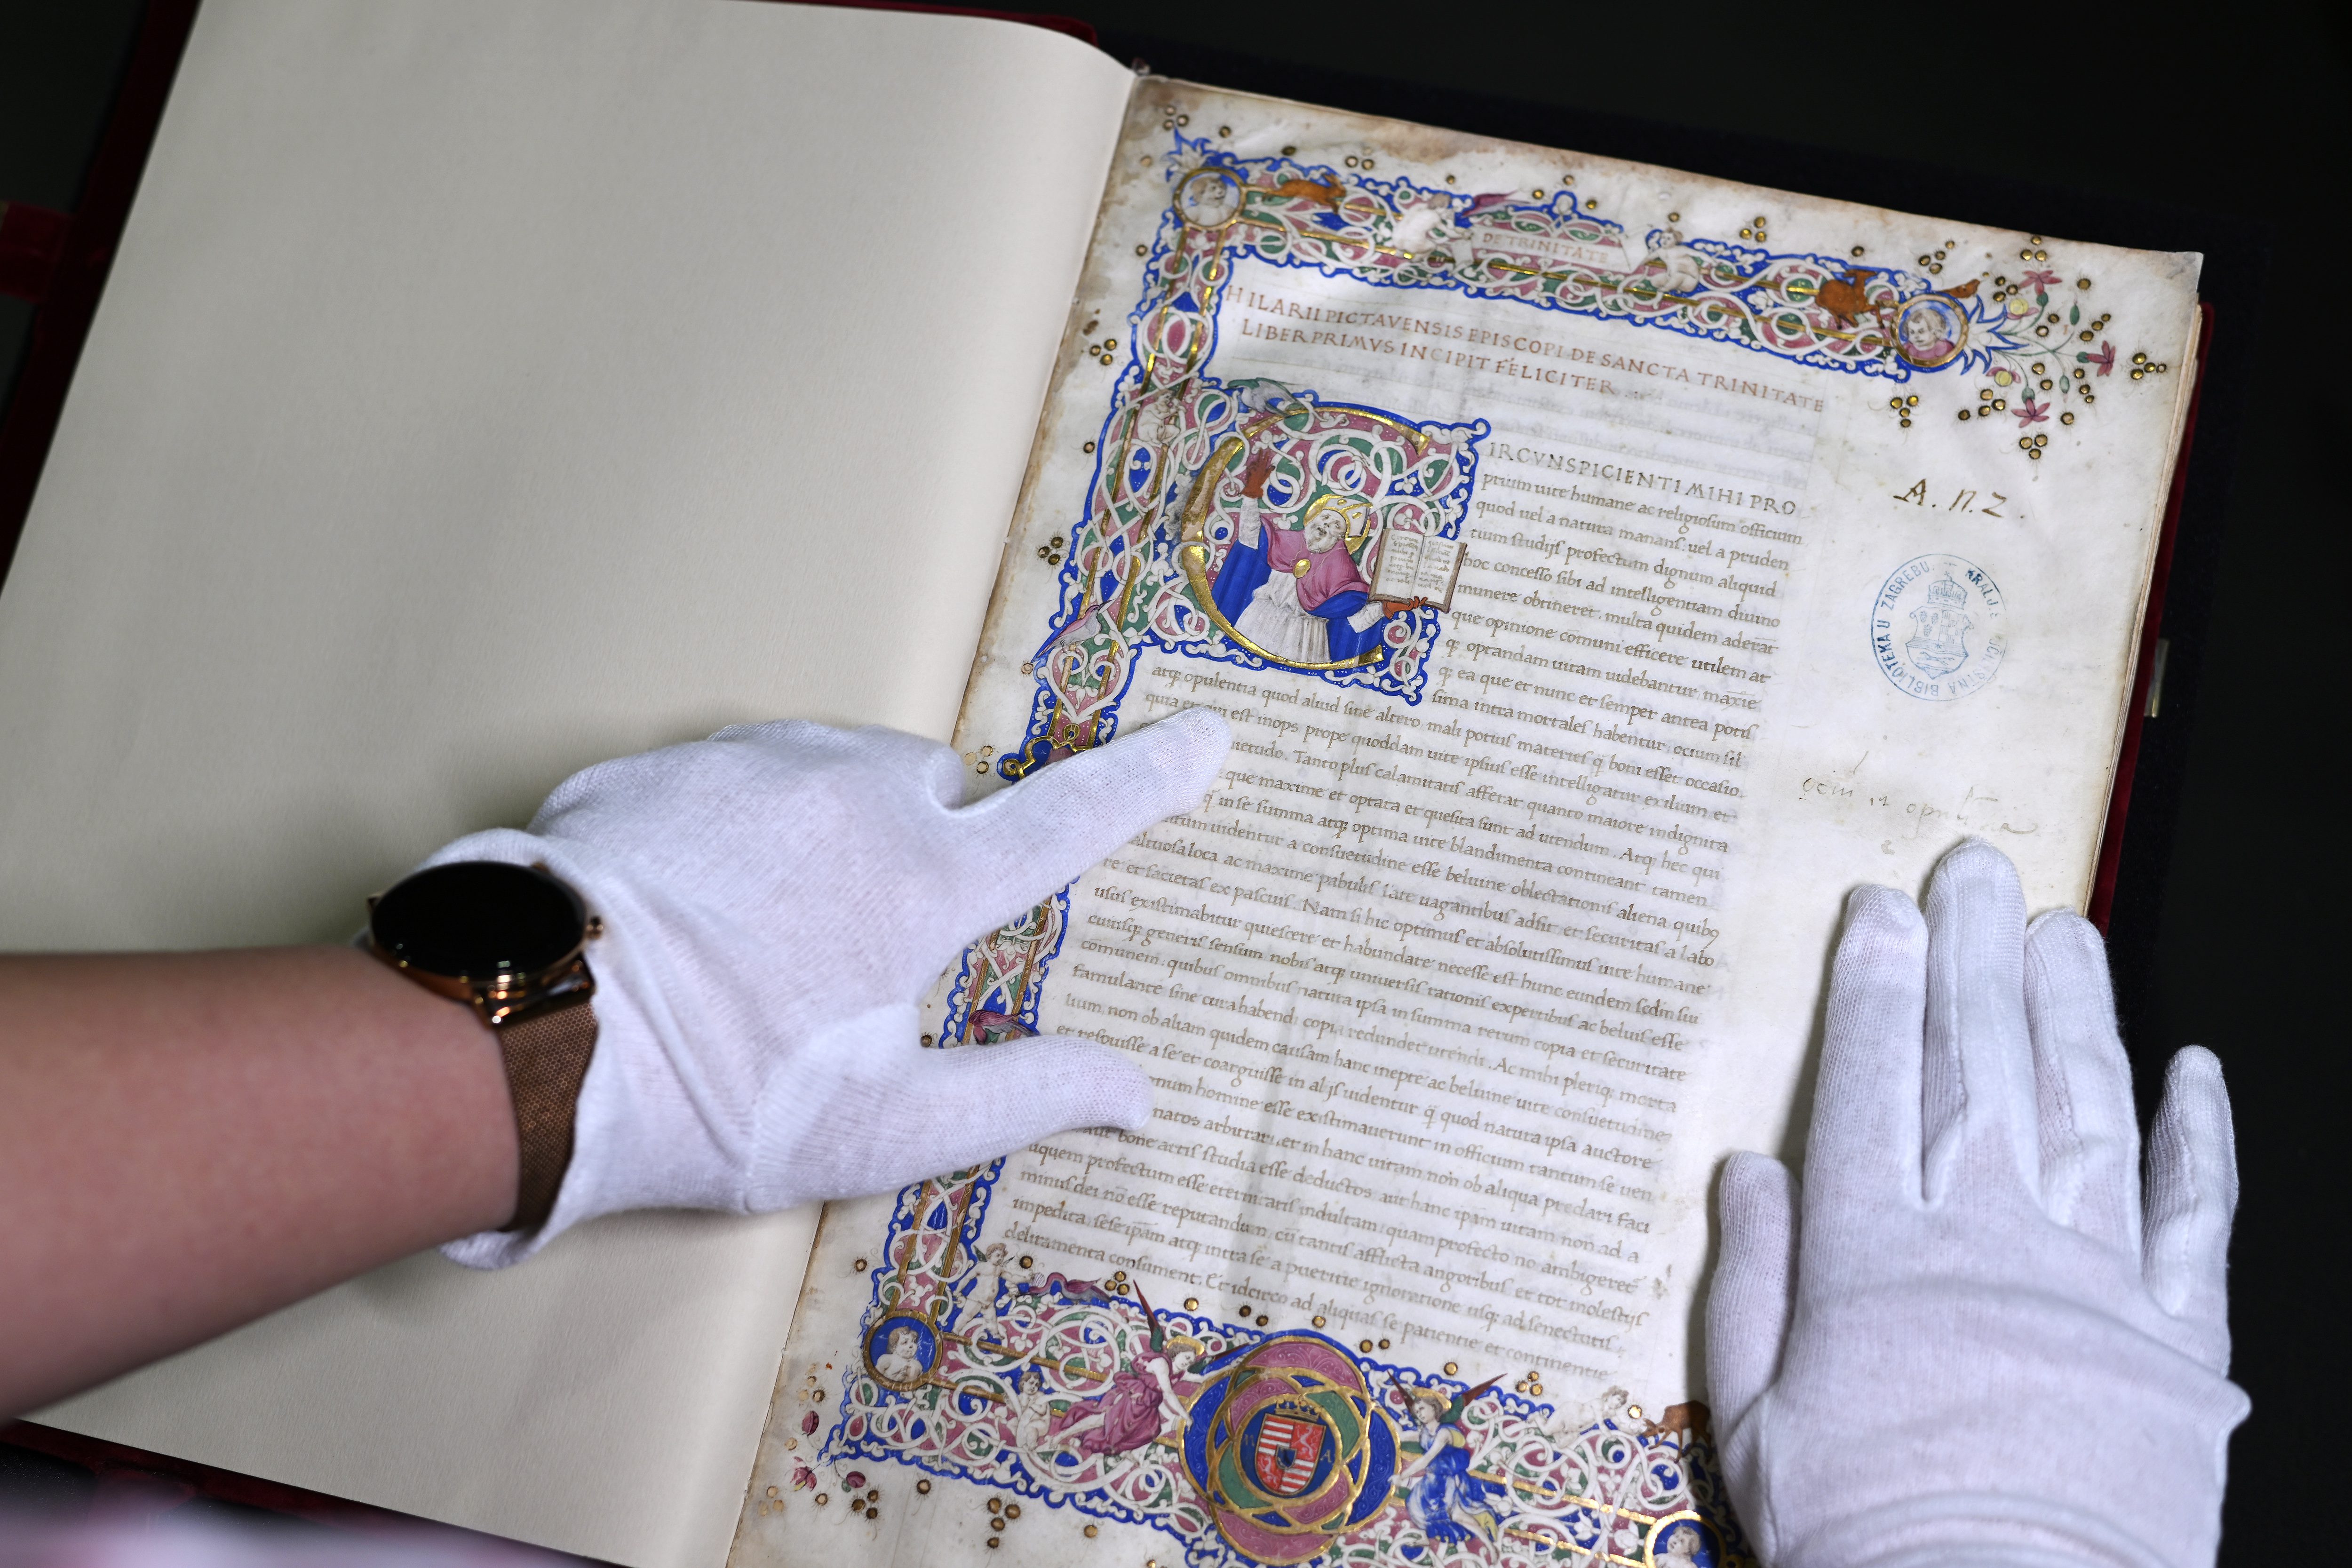 DE TRINITATE
HILARII PICTAVENSIS EPISCOPI DE SANCTA TRINITATE
LIBER PRIMVS INCIPIT FELICITER
IRCVNSPICIENTI MIHI PRO
prium uite humane ac religiosum officium
quod uel a natura manans: uel a pruden
tium studijs profectum dignum aliquid
hoc concesso sibi ad intelligentiam diuino
munere obtineret. multa quidem aderāt
que opinione cōmuni efficere utilem at
qꝫ optandam uitam uidebantur. maxīe
qꝫ ea que et nunc et semper antea potis
sima intra mortales habentur. ocium sil
atqꝫ opulentia quod aliud sine altero mali potius materies q̄ boni esset occasio.
quia et est inops prope quoddam uite ipsius esse intelligatur exilium et
Tanto plus calamitatis afferat quanto maiore indignita
que maxime et optata et quesita sunt ad utendum. Atqꝫ hec qui
q̄ in se summa atqꝫ optima uite blandimenta contineant tamen
uidentur a consuetudine esse beluine oblectationis aliena quibꝰ
saltuosa loca ac maxime pabulis late uagantibus adsit et securitas a labo
re et sacietas ex pascuis. Nam si hic optimus et absolutissimus uite humane
usus existimabitur quiescere et habundare necesse est hunc eundem scdm sui
cuiusqꝫ generis sensum nobis atqꝫ uniuersis rationis expertibus ac beluis esse
comunem. quibus omnibus natura ipsa in summa rerum copia et securitate
famulante sine cura habendi copia redundet utendi. Ac mihi pleriqꝫ morta
lium non ob aliam quidem causam hanc inepte ac beluine uite consuetudinē
et respuisse a se et coarguisse in alijs uidentur q̄ quod natura ipsa auctore
homine esse existimauerunt in officium tantum se uen
natos arbitrari. et in hanc uitam non ob aliqua preclari faci
aut bone artis studia esse deductos aut hanc ipsam uitam non ad a
liquem profectum esse eternitatis indultam: quam profecto no ambigeret
minus dei nō esse reputandum. cū tantis afflicta angoribus et tot molestijs
impedita. sese ipsam atqꝫ intra se a pueritie ignoratione usqꝫ ad senectutis
deliramenta consumeret. Et idcirco ad aliquas se patientie et continentie
A. N. Z.
BIBLIOTEKA U ZAGREBU